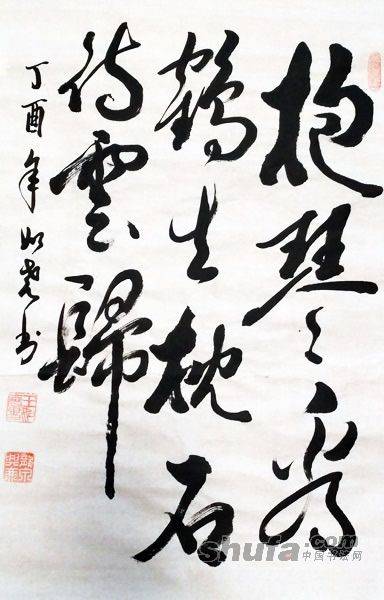 抱琴看
鶴去枕石
待雲歸
丁酉年如书
shufa.com
中国书法网